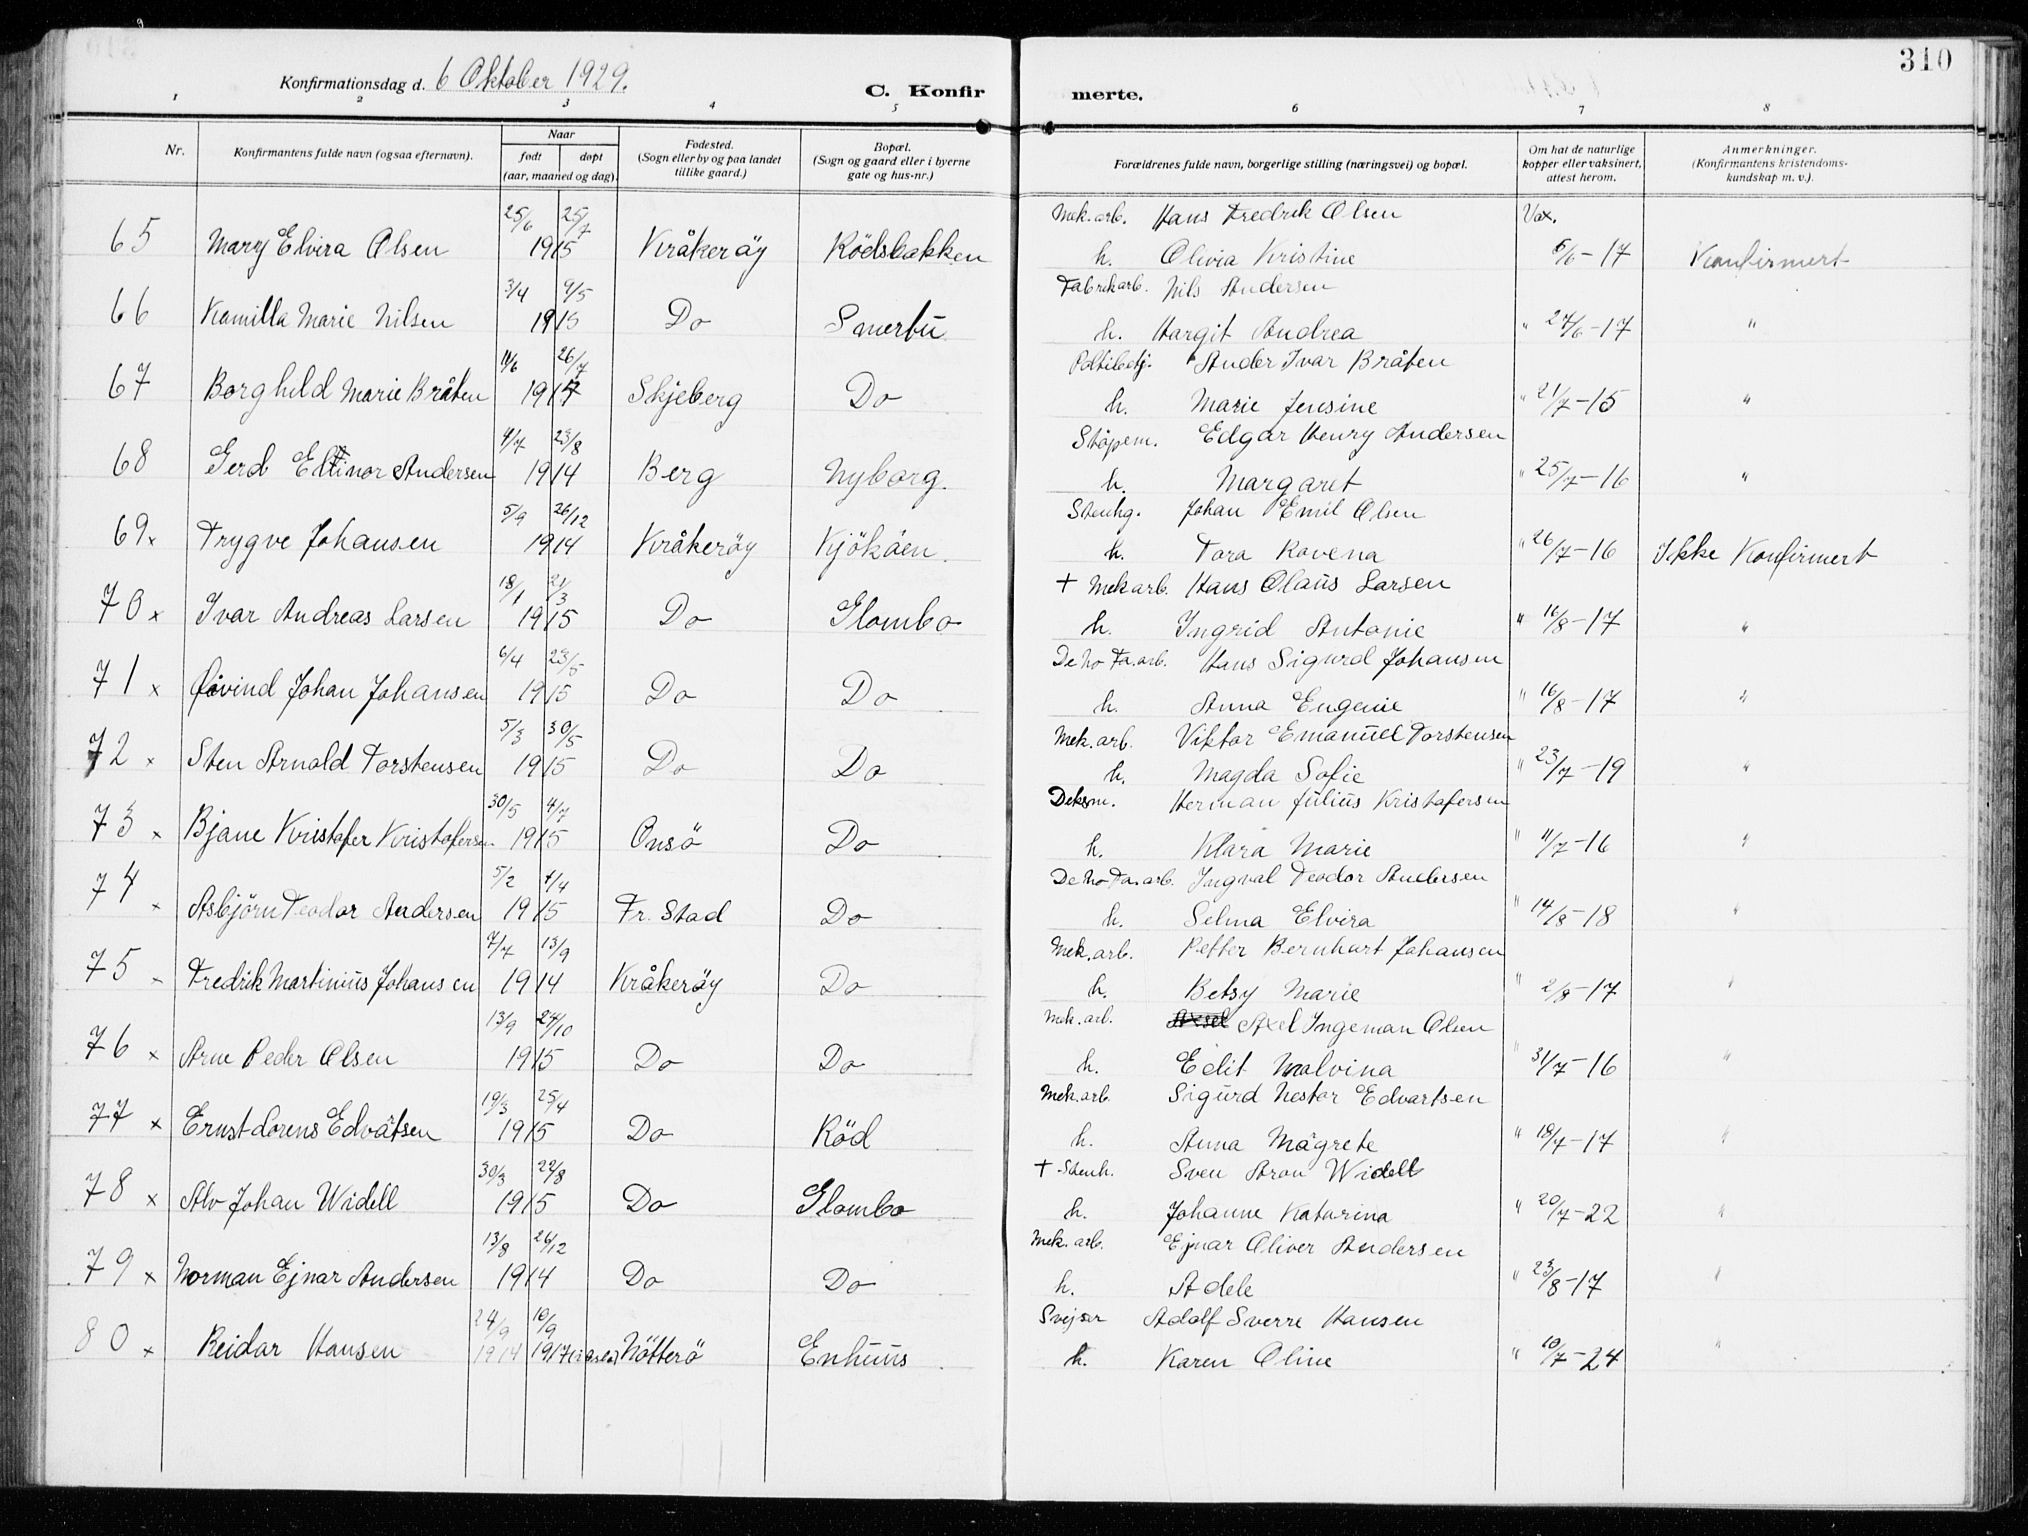 310
Konfirmationsdag d. 6 Oktober 1929.
C. Konfirmerte.
1 2 3 4 5 6 7 8
Nr.
Konfirmantens fulde navn (ogsaa efternavn).
Naar
født døpt
(aar, maaned og dag).
Fødested.
(Sogn eller by og paa landet
tillike gaard.)
Bopæl.
(Sogn og gaard eller i byerne
gate og hus-nr.)
Forældrenes fulde navn, borgerlige stilling (næringsvei) og bopæl.
Om hat de naturlige
kopper eller vaksinert,
attest herom.
Anmerkninger.
(Konfirmantens kristendoms-
kundskap m. v.).
25/6 25/7 Mek. arb. Hans Fredrik Olsen Vax.
65 Mary Elvira Olsen 1915 Kråkeröy Rödsbakken h. Olivia Kristine 5/6-17 Konfirmert
3/4 9/5 Fabrikarb. Nils Andersen
66 Kamilla Marie Nilsen 1915 Do Smertu h. Hargit Andrea " 27/6-17 "
11/6 26/7 Politibetj. Ander Ivar Bråten
67 Borghild Marie Bråten Skjeberg Do h. Marie Jensine " 21/7-15 "
4/7 23/8 Stöpem. Edgar Henry Andersen
68 Gerd Ellinor Andersen 1914 Berg Nyborg. h. Margaret " 25/7-16 "
5/9 26/12 Stenhg. Johan Emil Olsen
69 x Trygve Johansen 1914 Kråkeröy Kjököen h. Tora Rovena " 26/7-16 Ikke Konfirmert
18/1 21/3 + Mek arb. Hans Olaus Larsen
70 x Ivar Andreas Larsen 1915 Do Glombo h. Ingrid Antonie " 16/8-17 "
6/4 23/5 De No Fa. arb. Hans Sigurd Johansen
71 x Øivind Johan Johansen 1915 Do Do h. Anna Eugenie " 16/8-17 "
5/3 30/5 Mek. arb. Viktor Emanuel Torstensen
72 x Sten Arnold Torstensen 1915 Do Do h. Magda Sofie " 23/7-19 "
30/5 4/7 Deksm. Herman Julius Kristofersen
73 x Bjane Kristofer Kristofersen 1915 Onsö Do h. Klara Marie " 11/7-16 "
5/2 4/4 De No Fa. arb. Ingval Teodor Andersen
74 x Asbjörn Teodor Andersen 1915 Fr. Stad Do h. Selma Elvira " 14/8-18 "
7/7 13/9 Mek. arb. Petter Bernhart Johansen
75 Fredrik Martinius Johansen 1914 Kråkeröy Do h. Betsy Marie " 2/8-17 "
13/9 24/10 Mek. arb. Axel Ingeman Olsen
76 x Arne Peder Olsen 1915 Do Do h. Edit Malvina " 31/7-16 "
19/3 25/4 Mek. arb. Sigurd Nestor Edvartsen
77 x Ernst Lorens Edvartsen 1915 Do Röd h. Anna Magrete " 18/7-17 "
30/3 22/8 + Stenh. Sven Aron Widell
78 x Alv Johan Widell 1915 Do Glombo h. Johanne Katarina " 20/7-22 "
13/8 26/12 Mek. arb. Ejnar Oliver Andersen
79 x Norman Ejnar Andersen 1914 Do Do h. Adele " 23/8-17 "
24/9 10/9 Svejser Adolf Sverre Hansen
80 x Reidar Hansen 1914 1917 Nötterö Enhuus h. Karen Oline " 10/7-24 "